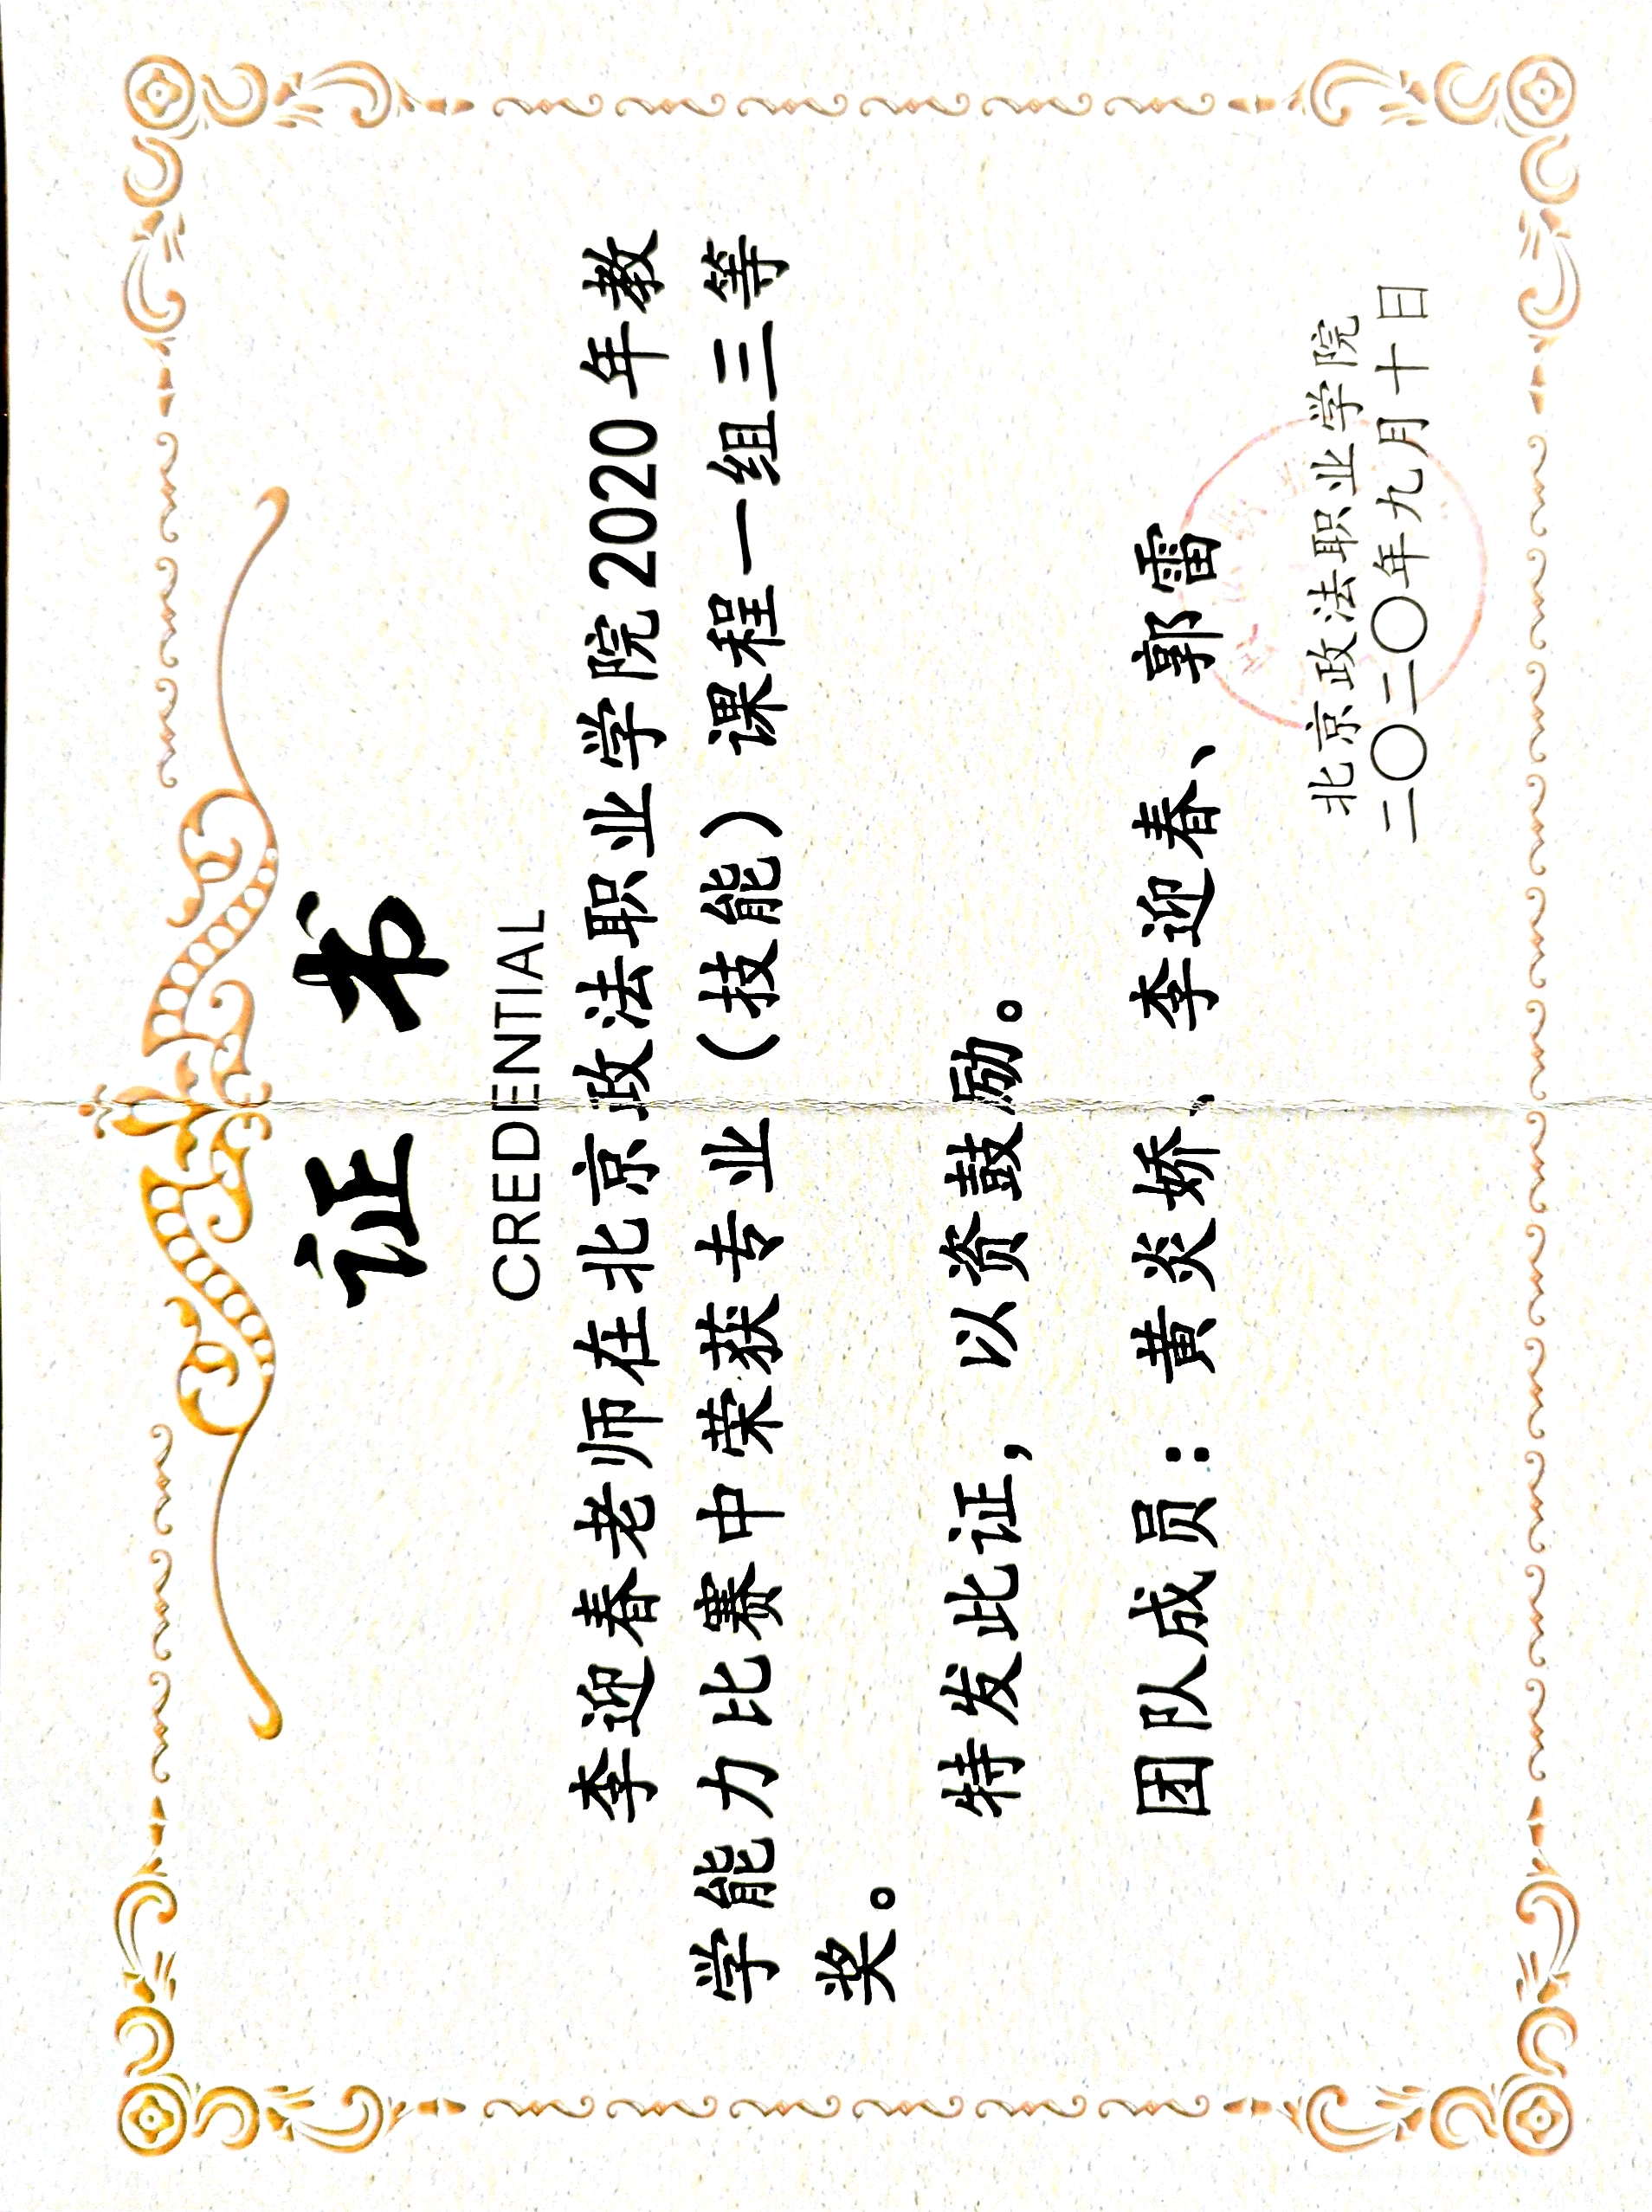 证书
CREDENTIAL
李迎春老师在北京政法职业学院2020年教
学能力比赛中荣获专业（技能）课程一组三等
奖。
特发此证，以资鼓励。
团队成员：黄炎娇、李迎春、郭雷
北京政法职业学院
二〇二〇年九月十日